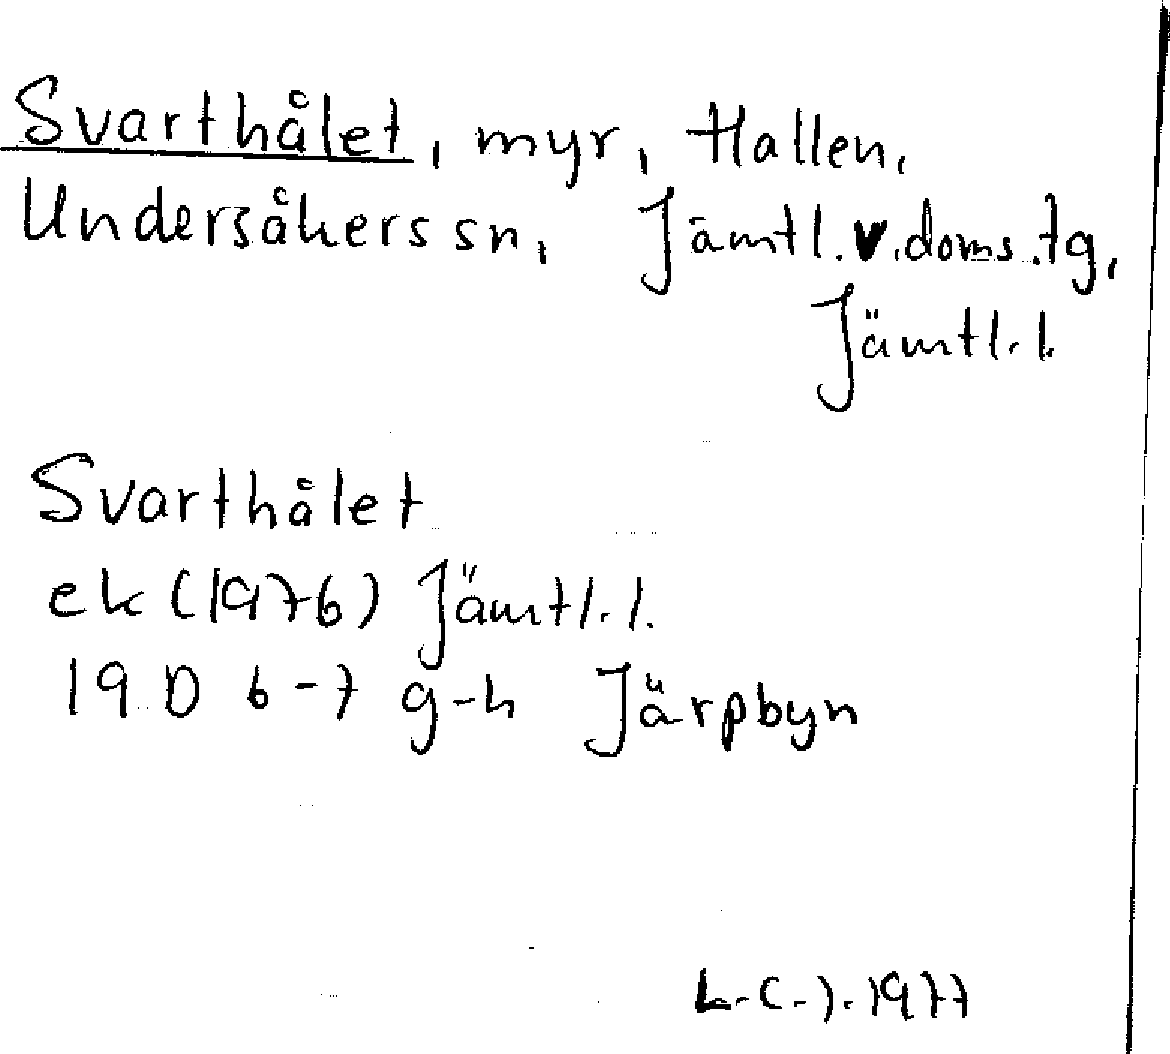 Svarthålet, myr, Hallen,
Undersåkers sn, Jämtl. v. doms. tg,
Jämtl. l.
Svarthålet
ek (1976) Jämtl. l.
19 D 6-7 g-h Järpbyn
L.C.J. 1977